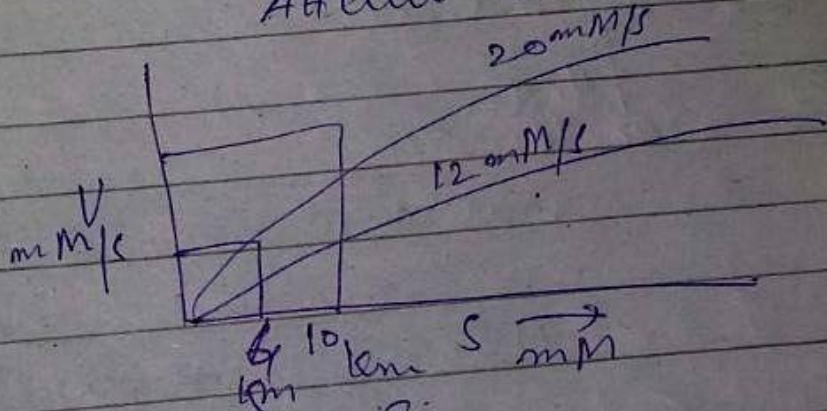 20 mM/s
12 mM/s
V
mM/s
6 10 km S → mM
km